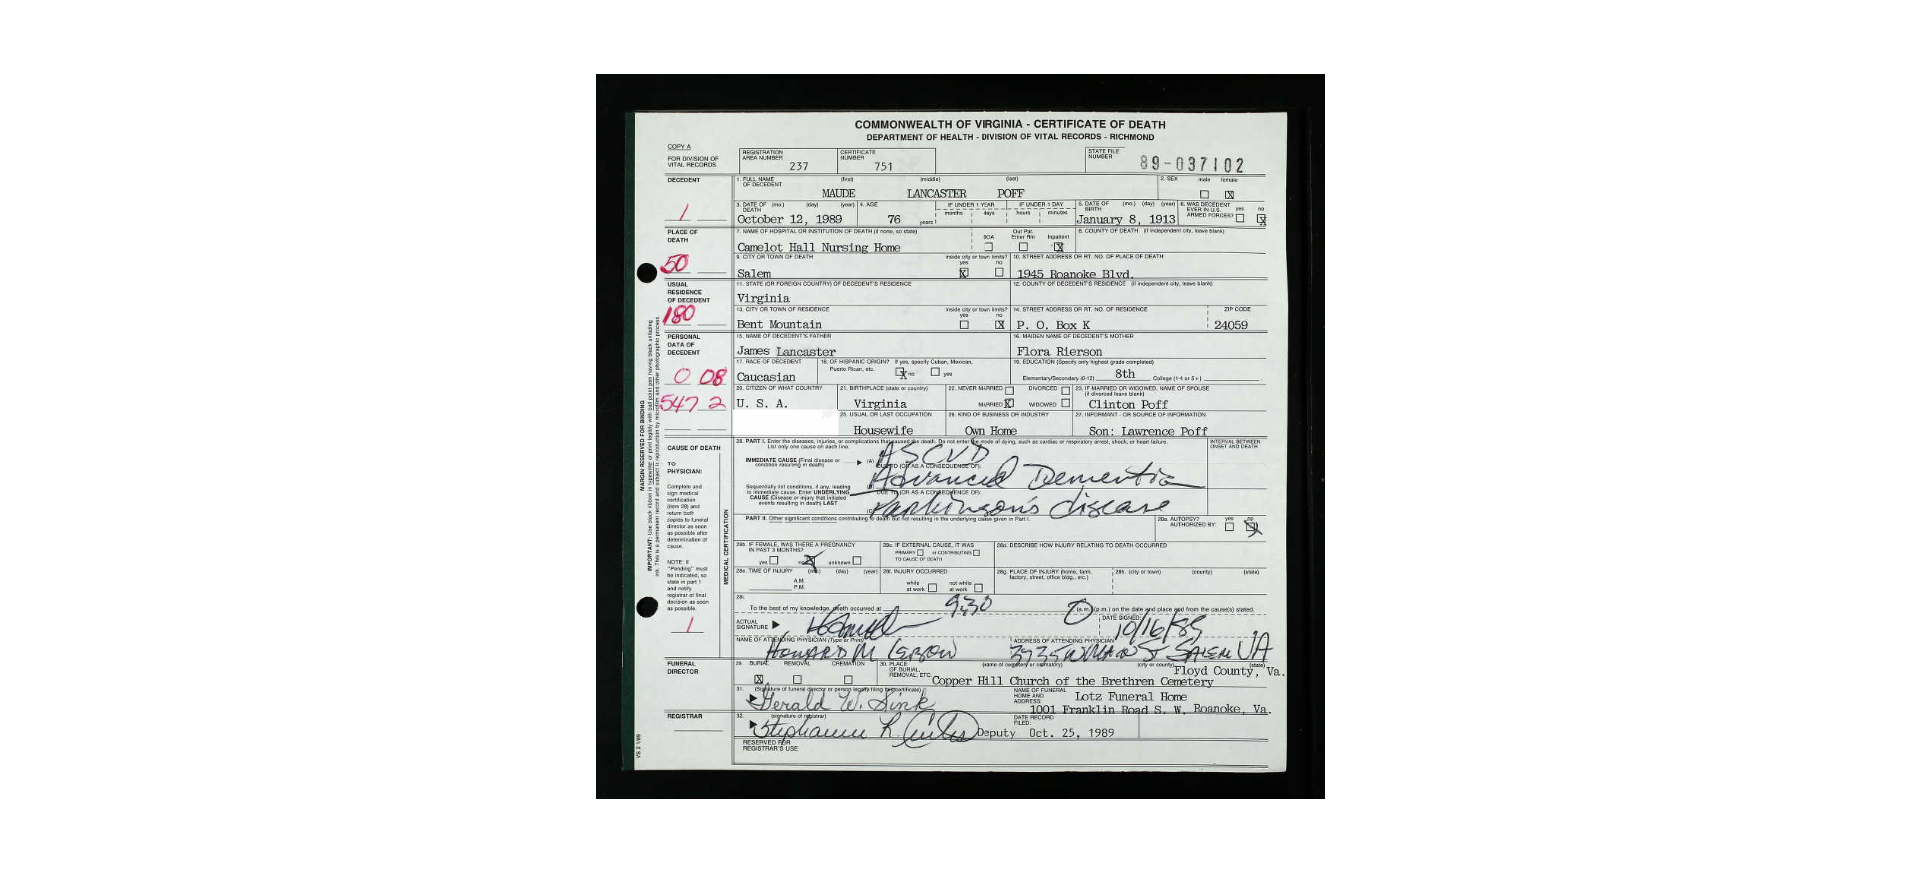 COMMONWEALTH OF VIRGINIA - CERTIFICATE OF DEATH
DEPARTMENT OF HEALTH - DIVISION OF VITAL RECORDS - RICHMOND
COPY A
FOR DIVISION OF VITAL RECORDS
REGISTRATION AREA NUMBER 237
CERTIFICATE NUMBER 751
STATE FILE NUMBER 89-037102
DECEDENT
1. FULL NAME OF DECEDENT (first) (middle) (last)
MAUDE LANCASTER POFF
2. SEX male female X
1
3. DATE OF DEATH (mo.) (day) (year)
October 12, 1989
4. AGE 76 years
IF UNDER 1 YEAR months days
IF UNDER 1 DAY hours minutes
5. DATE OF BIRTH (mo.) (day) (year)
January 8, 1913
6. WAS DECEDENT EVER IN U.S. ARMED FORCES? yes no X
PLACE OF DEATH
7. NAME OF HOSPITAL OR INSTITUTION OF DEATH (if none, so state)
Camelot Hall Nursing Home
DOA Out Pat. Emer Rm Inpatient X
8. COUNTY OF DEATH (if independent city, leave blank)
50
9. CITY OR TOWN OF DEATH
Salem
inside city or town limits? yes X no
10. STREET ADDRESS OR RT. NO. OF PLACE OF DEATH
1945 Roanoke Blvd.
USUAL RESIDENCE OF DECEDENT
11. STATE (OR FOREIGN COUNTRY) OF DECEDENT'S RESIDENCE
Virginia
12. COUNTY OF DECEDENT'S RESIDENCE (if independent city, leave blank)
180
13. CITY OR TOWN OF RESIDENCE
Bent Mountain
inside city or town limits? yes no X
14. STREET ADDRESS OR RT. NO. OF RESIDENCE
P. O. Box K
ZIP CODE
24059
PERSONAL DATA OF DECEDENT
15. NAME OF DECEDENT'S FATHER
James Lancaster
16. MAIDEN NAME OF DECEDENT'S MOTHER
Flora Rierson
0 08
17. RACE OF DECEDENT
Caucasian
18. OF HISPANIC ORIGIN? If yes, specify Cuban, Mexican, Puerto Rican, etc. X no yes
19. EDUCATION (Specify only highest grade completed)
Elementary/Secondary (0-12) 8th College (1-4 or 5+)
547 2
20. CITIZEN OF WHAT COUNTRY
U. S. A.
21. BIRTHPLACE (state or country)
Virginia
22. NEVER MARRIED DIVORCED
MARRIED X WIDOWED
23. IF MARRIED OR WIDOWED, NAME OF SPOUSE (if divorced leave blank)
Clinton Poff
25. USUAL OR LAST OCCUPATION
Housewife
26. KIND OF BUSINESS OR INDUSTRY
Own Home
27. INFORMANT - OR SOURCE OF INFORMATION
Son: Lawrence Poff
CAUSE OF DEATH
28. PART I. Enter the diseases, injuries, or complications that caused the death. Do not enter the mode of dying, such as cardiac or respiratory arrest, shock, or heart failure. List only one cause on each line.
INTERVAL BETWEEN ONSET AND DEATH
IMMEDIATE CAUSE (Final disease or condition resulting in death) (A) ASCVD
DUE TO (OR AS A CONSEQUENCE OF):
Sequentially list conditions, if any, leading to immediate cause. Enter UNDERLYING CAUSE (Disease or injury that initiated events resulting in death) LAST
Advanced Dementia
DUE TO (OR AS A CONSEQUENCE OF):
Parkinson's disease
TO PHYSICIAN:
Complete and sign medical certification (item 28) and return both copies to funeral director as soon as possible after determination of cause.
NOTE: If "Pending" must be indicated, so state in part 1 and notify registrar of final decision as soon as possible.
1
MEDICAL CERTIFICATION
PART II. Other significant conditions contributing to death but not resulting in the underlying cause given in Part I.
28a. AUTOPSY? AUTHORIZED BY: yes no
28b. IF FEMALE, WAS THERE A PREGNANCY IN PAST 3 MONTHS? yes no unknown
28c. IF EXTERNAL CAUSE, IT WAS
PRIMARY or CONTRIBUTING TO CAUSE OF DEATH
28d. DESCRIBE HOW INJURY RELATING TO DEATH OCCURRED
28e. TIME OF INJURY (mo.) (day) (year)
A.M.
P.M.
28f. INJURY OCCURRED
while at work not while at work
28g. PLACE OF INJURY (home, farm, factory, street, office bldg., etc.)
28h. (city or town) (county) (state)
28i.
To the best of my knowledge, death occurred at 9:30 (a.m.)(p.m.) on the date and place and from the cause(s) stated.
ACTUAL SIGNATURE
DATE SIGNED: 10/16/89
NAME OF ATTENDING PHYSICIAN (Type or Print)
Howard M
ADDRESS OF ATTENDING PHYSICIAN
Salem VA
FUNERAL DIRECTOR
29. BURIAL X REMOVAL CREMATION
30. PLACE OF BURIAL, REMOVAL, ETC. (name of cemetery or crematory) (city or county) (state)
Floyd County, Va.
Copper Hill Church of the Brethren Cemetery
31. (Signature of funeral director or person legally filing this certificate)
Gerald W. Sink
NAME OF FUNERAL HOME AND ADDRESS:
Lotz Funeral Home
1001 Franklin Road S. W. Roanoke, Va.
REGISTRAR
32. (signature of registrar)
Stephanie R. Deputy
DATE RECORD FILED:
Oct. 25, 1989
RESERVED FOR REGISTRAR'S USE
MARGIN RESERVED FOR BINDING